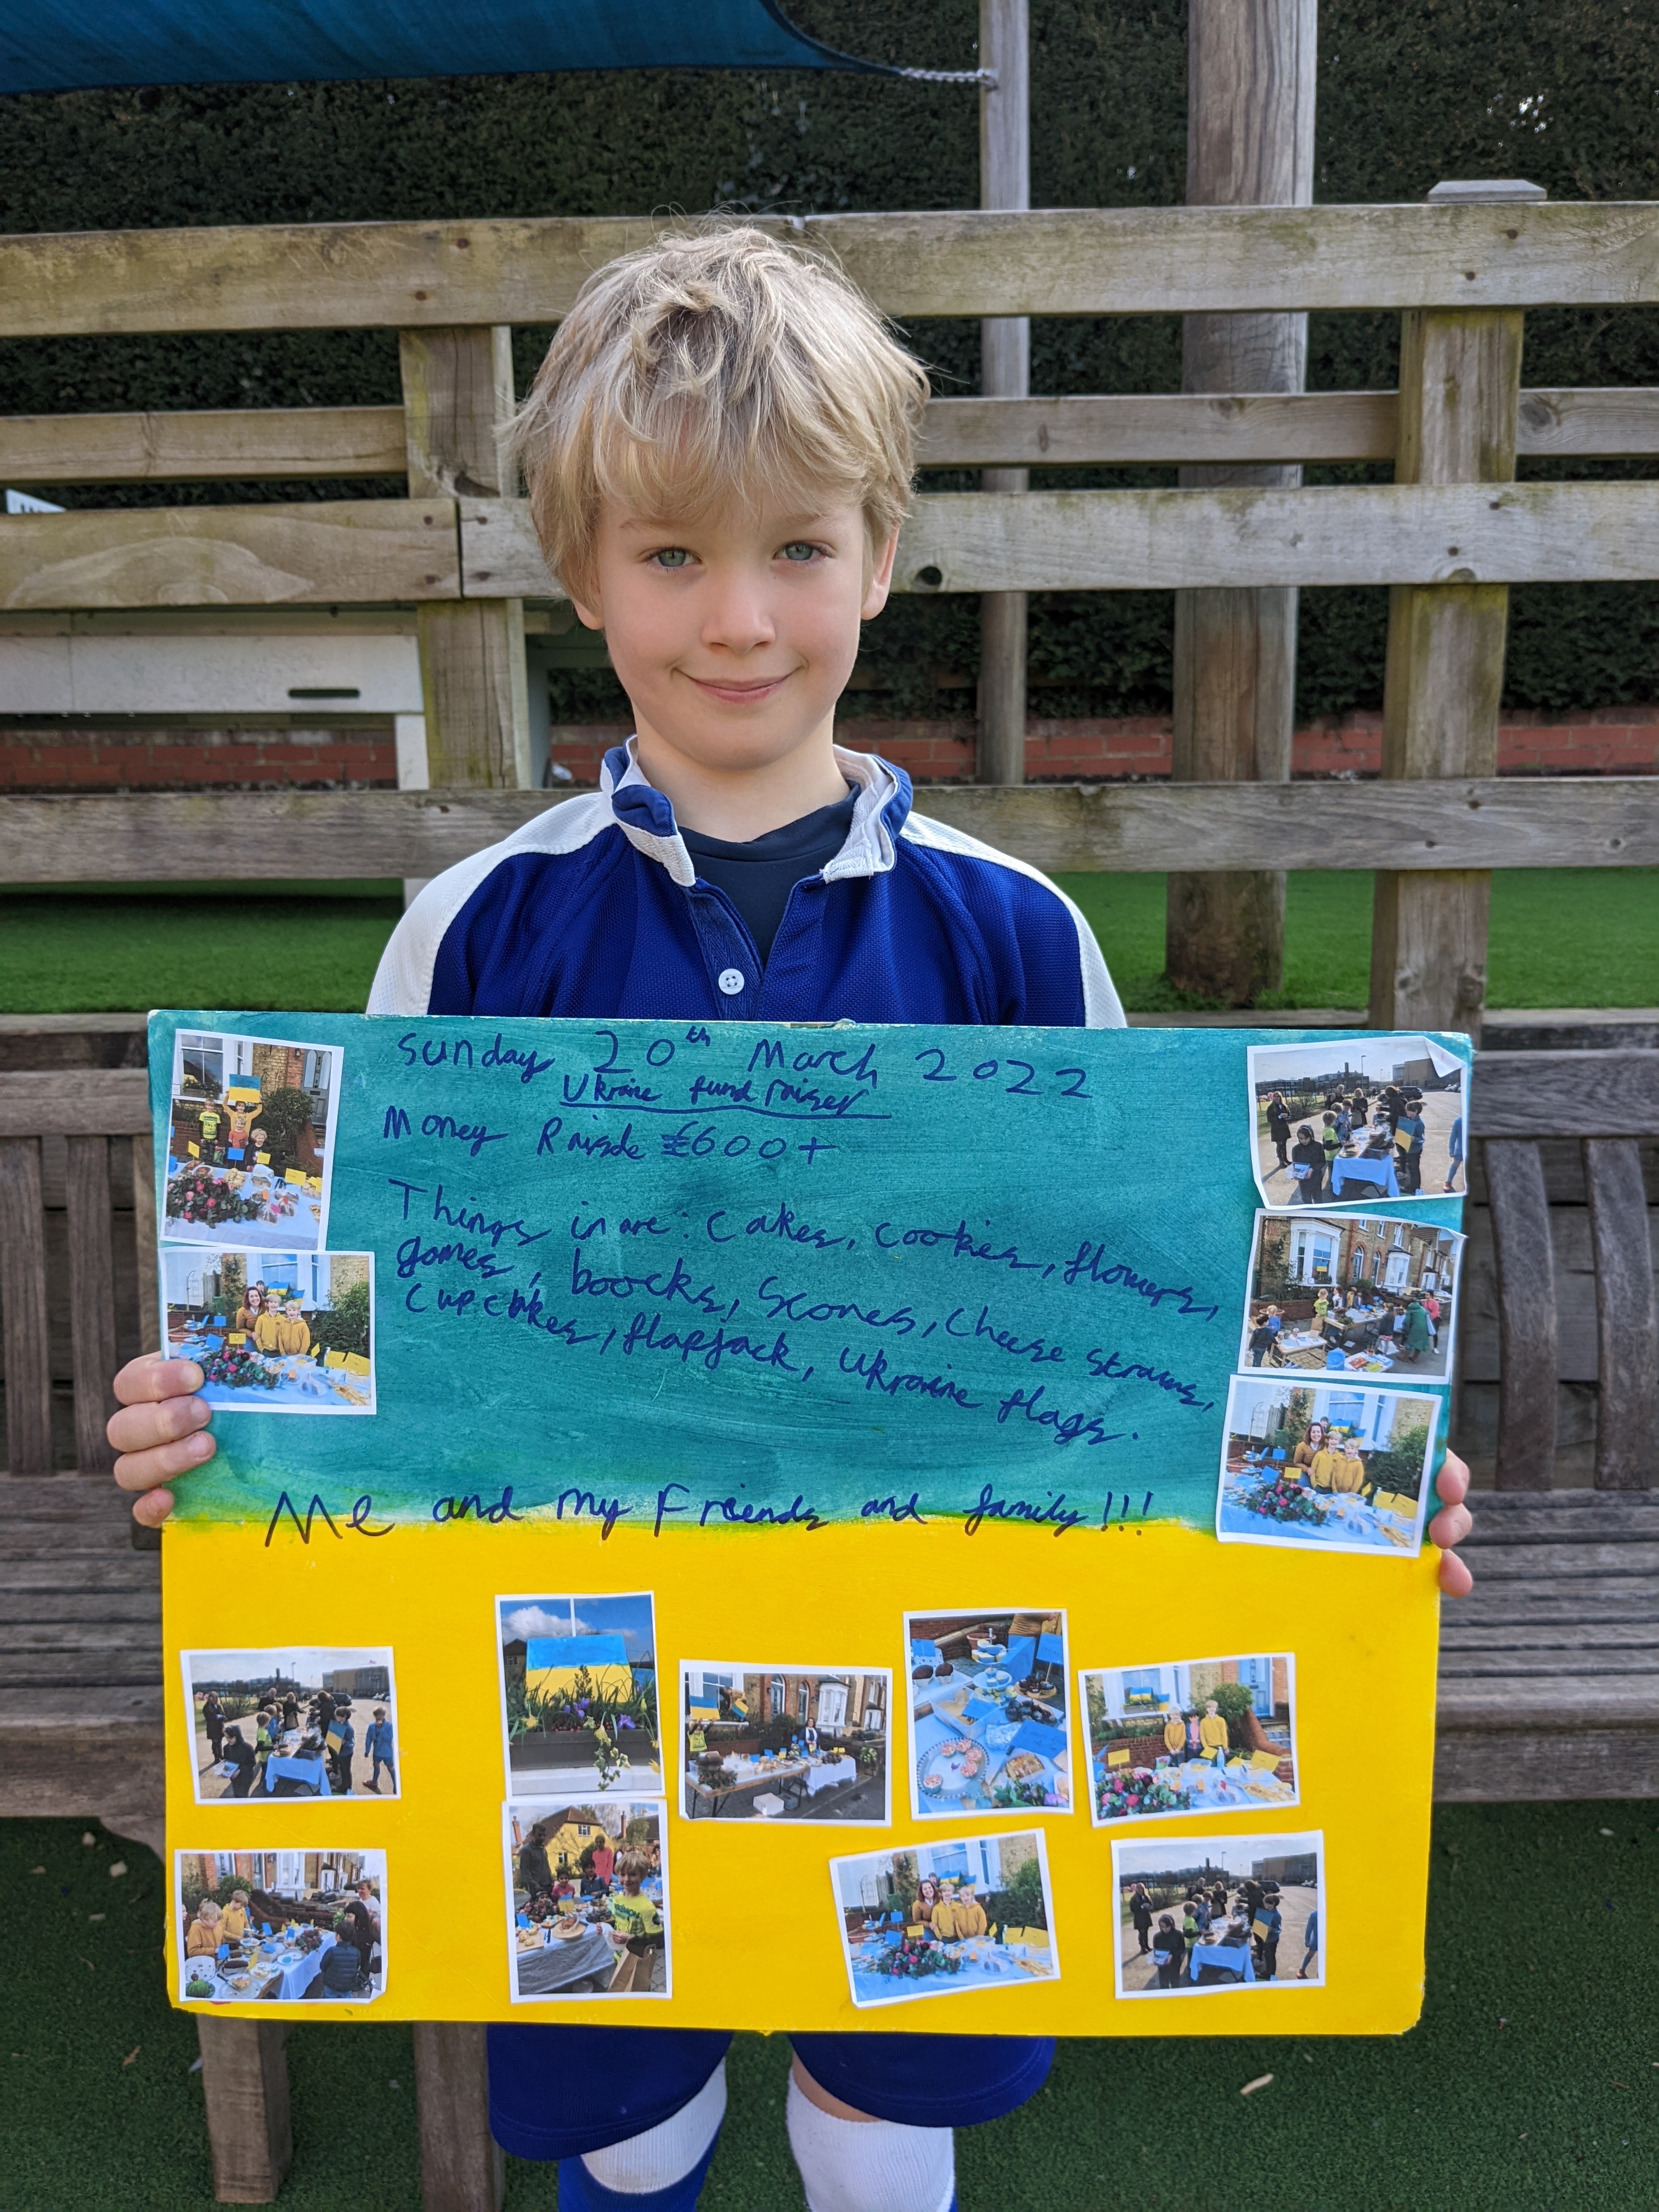 Sunday 20th March 2022
Ukraine fund raiser
Money Raisde £600+
Things in are: Cakes, Cookies, flowers,
games, boocks, Scones, Cheese straws,
Cupcakes, flapjack, Ukraine flags.
Me and my Friends and family!!!